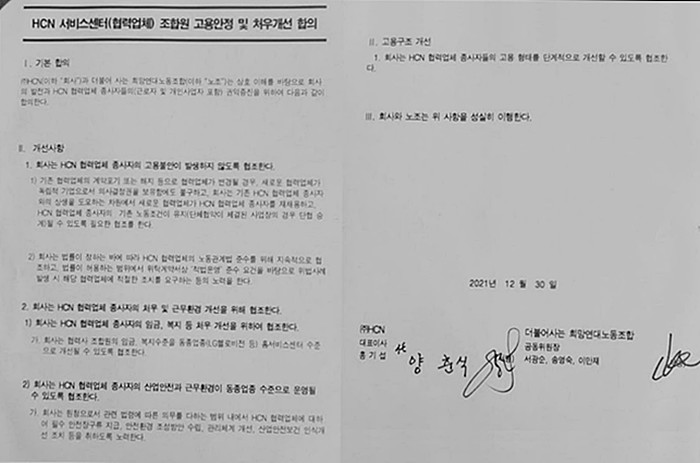 HCN 서비스센터(협력업체) 조합원 고용안정 및 처우개선 합의
Ⅰ. 기본 합의
㈜HCN(이하 "회사")과 더불어 사는 희망연대노동조합(이하 "노조")는 상호 이해를 바탕으로 회사
의 발전과 HCN 협력업체 종사자들의(근로자 및 개인사업자 포함) 권익증진을 위하여 다음과 같이
합의한다.
Ⅱ. 개선사항
1. 회사는 HCN 협력업체 종사자의 고용불안이 발생하지 않도록 협조한다.
1) 기존 협력업체의 계약포기 또는 해지 등으로 협력업체가 변경될 경우, 새로운 협력업체가
독립적 기업으로서 의사결정권을 보유함에도 불구하고, 회사는 기존 HCN 협력업체 종사자
와의 상생을 도모하는 차원에서 새로운 협력업체가 HCN 협력업체 종사자를 재채용하고,
HCN 협력업체 종사자의 기존 노동조건이 유지(단체협약이 체결된 사업장의 경우 단협 승
계)될 수 있도록 필요한 협조를 한다.
2) 회사는 법률이 정하는 바에 따라 HCN 협력업체의 노동관계법 준수를 위해 지속적으로 협
조하고, 법률이 허용하는 범위에서 위탁계약서상 '적법운영' 준수 요건을 바탕으로 위법사례
발생 시 해당 협력업체에 적절한 조치를 요구하는 등의 노력을 한다.
2. 회사는 HCN 협력업체 종사자의 처우 및 근무환경 개선을 위해 협조한다.
1) 회사는 HCN 협력업체 종사자의 임금, 복지 등 처우 개선을 위하여 협조한다.
가. 회사는 협력사 조합원의 임금, 복지수준을 동종업종(LG헬로비전 등) 홈서비스센터 수준
으로 개선될 수 있도록 협조한다.
2) 회사는 HCN 협력업체 종사자의 산업안전과 근무환경이 동종업종 수준으로 운영될
수 있도록 협조한다.
가. 회사는 원청으로서 관련 법령에 따른 의무를 다하는 범위 내에서 HCN 협력업체에 대하
여 필수 안전장구류 지급, 안전환경 조성방안 수립, 관리체계 개선, 산업안전보건 인식개
선 조치 등을 취하도록 노력한다.
Ⅱ. 고용구조 개선
1. 회사는 HCN 협력업체 종사자들의 고용 형태를 단계적으로 개선할 수 있도록 협조한
다.
Ⅲ. 회사와 노조는 위 사항을 성실히 이행한다.
2021년 12 월 30 일
㈜HCN
대표이사
홍 기 섭
양 춘 식
더불어사는 희망연대노동조합
공동위원장
서광순, 송영숙, 이만재